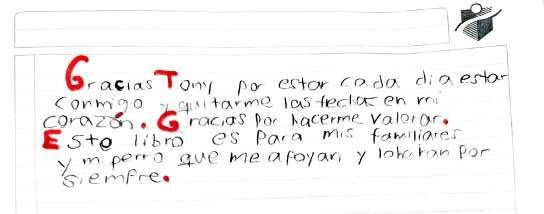 Gracias Tony por estar cada dia estar
conmigo y quitarme las flechas en mi
corazón. Gracias por hacerme valorar.
Esto libro es para mis familiares
y m perro que me apoyan y lo haran por
siempre.